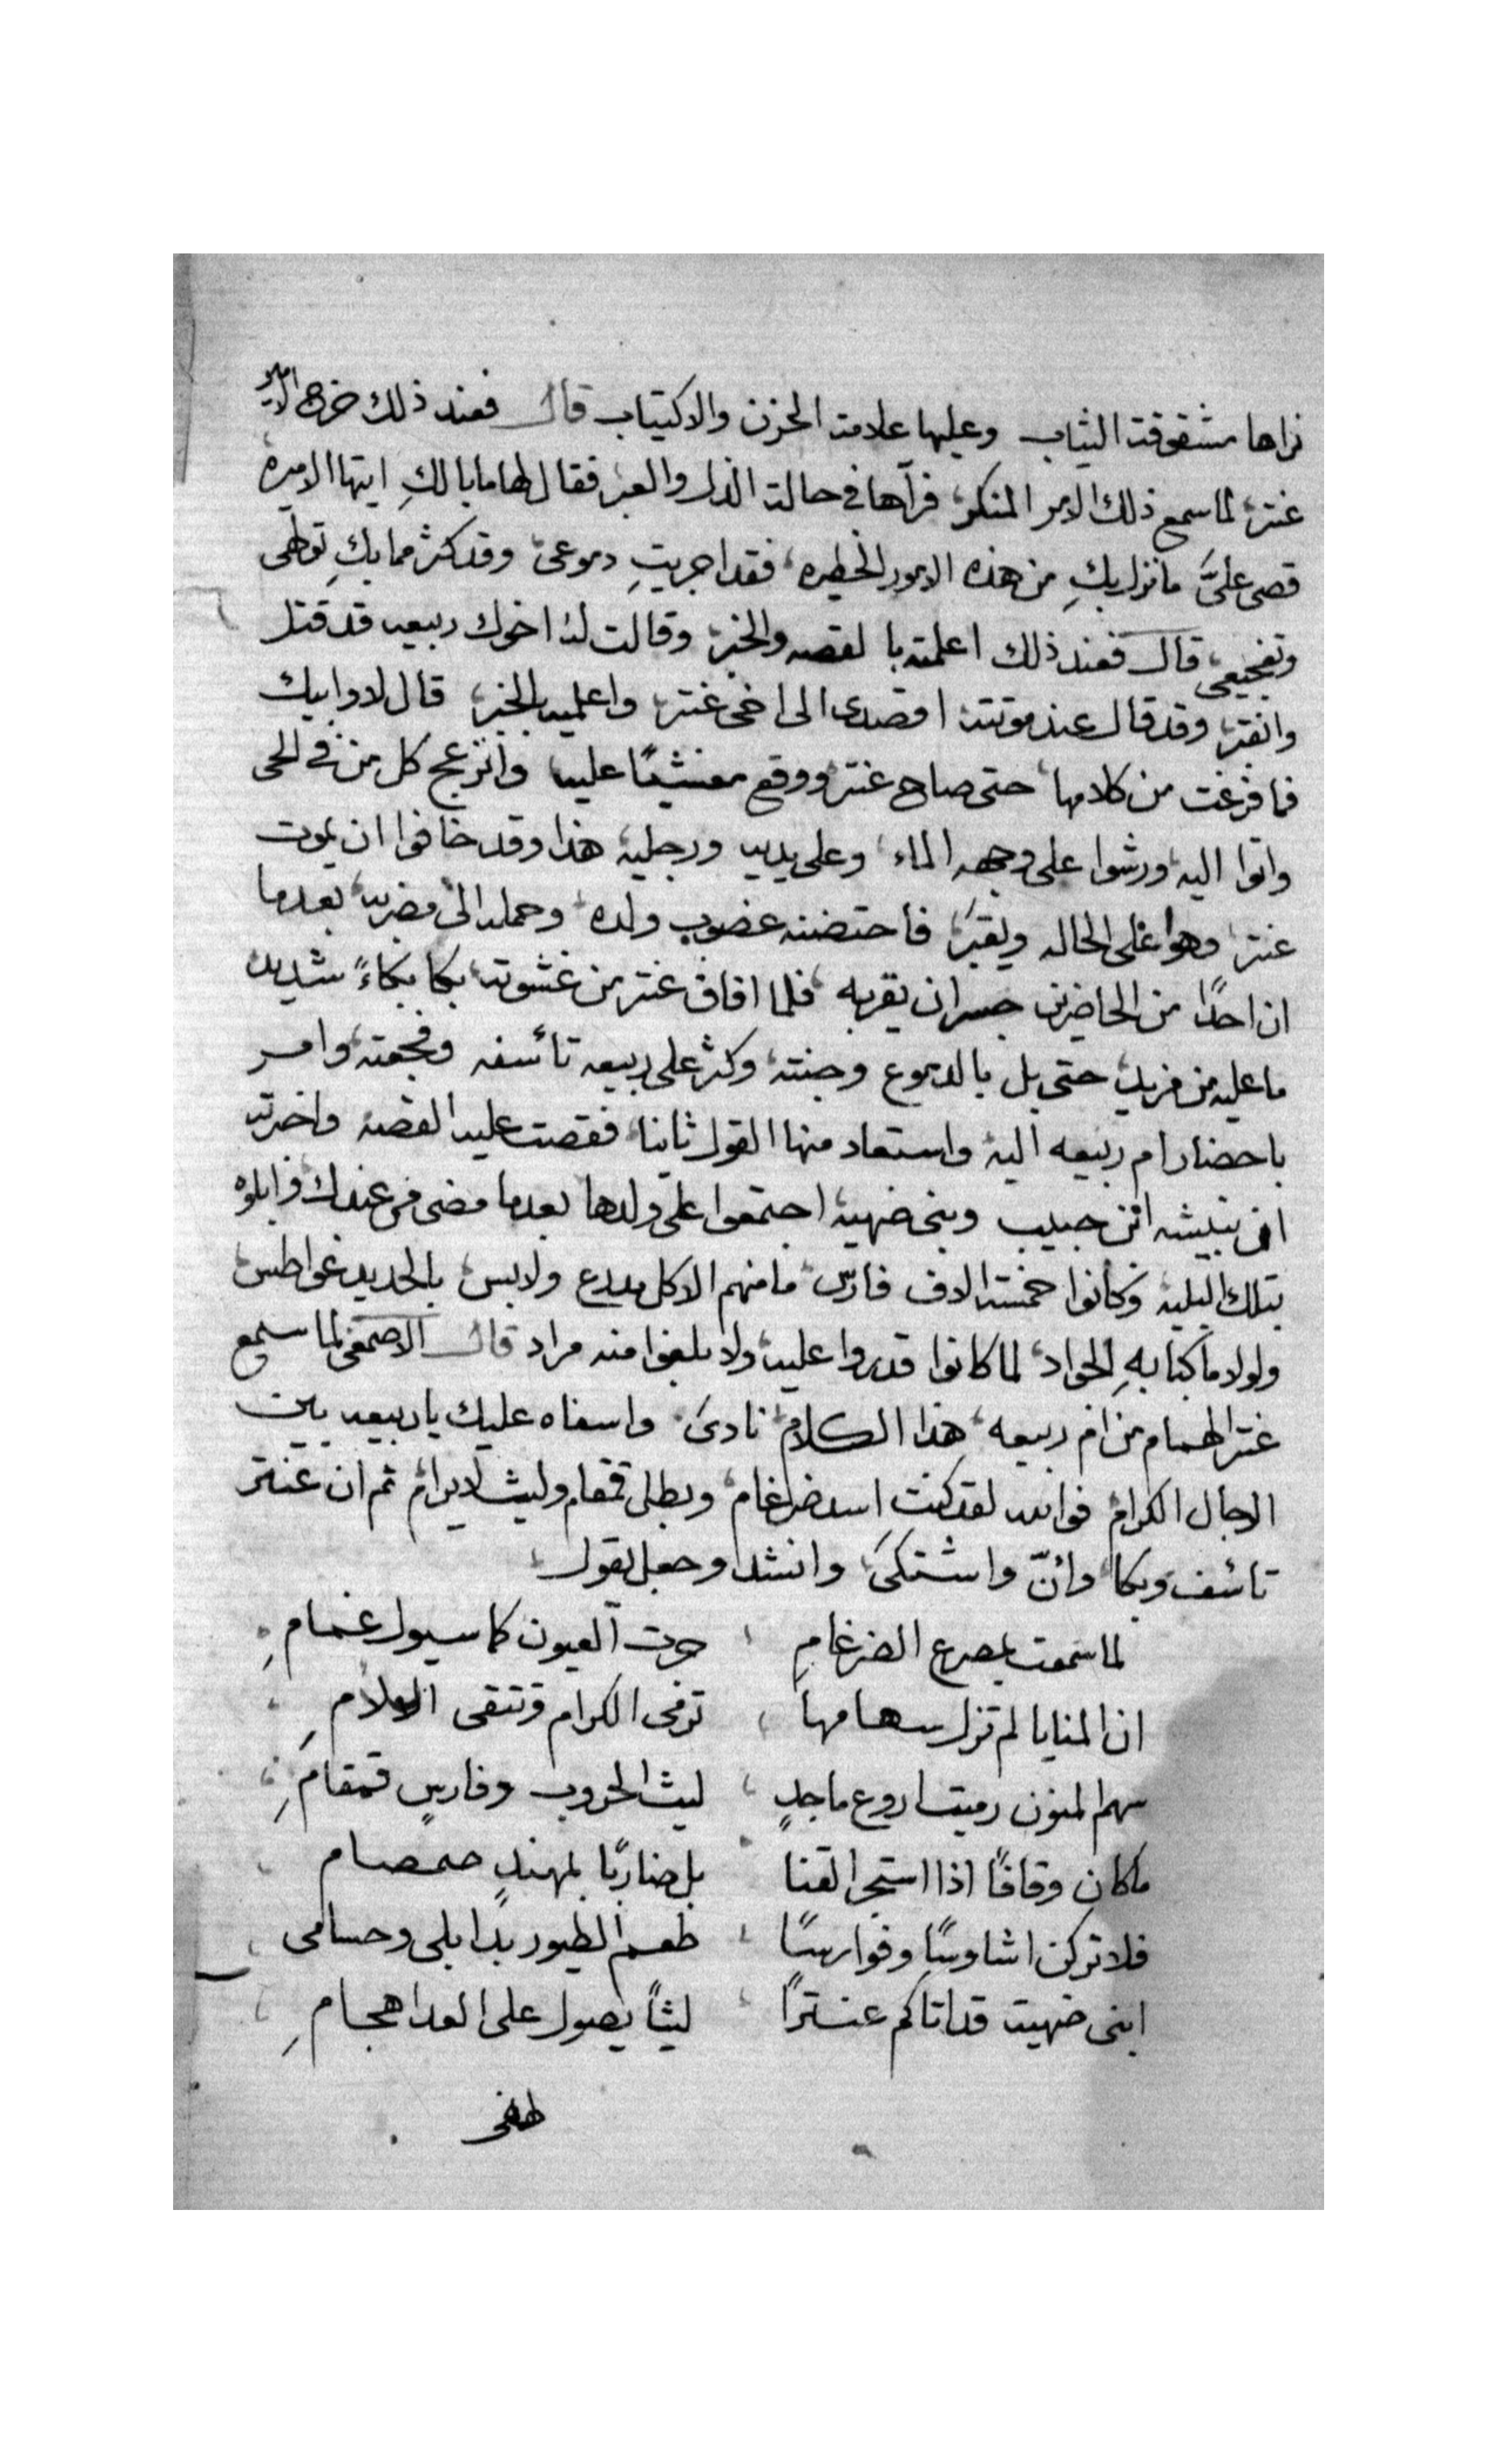 نراها مشقوقت الثياب وعليها علامة الحزن والاكتياب قال فعند ذلك خرج الامير
عنتر لما سمع ذلك الامر المنكر فرآها في حالة الذل والعبر فقال لها ما بالكِ ايتها الاميره
قصى علىَّ ما نزل بكِ من هذه الامور الخطيره فقد اجريتِ دموعى وقد كثر مما بكِ
وتفجيعى قال فعند ذلك اعلمته بالقصه والخبر وقالت له اخوك ربيعه قد قتل
وانقبر وقد قال عند موتته اقصدى الى اخى عنتر واعلميه بالخبر قال لا وابيك
فما فرغت من كلامها حتى صاح عنتر ووقع مغشيًا عليه وانزعج كل من في الحى
واتوا اليه ورشوا على وجهه الماء وعلى يديه ورجليه هذا وقد خافوا ان يموت
عنتر وهوا على الحاله ويقبر فاحتضنه غضوب ولده وحمله الى مضربه بعدما
ان احدًا من الحاضرين جسر ان يقربه فلما افاق عنتر من غشوته بكا بكاءً شديد
ما عليه من مزيد حتى بل بالدموع وجنته وكثر على ربيعه تأسفه وفجعته وامر
باحضار ام ربيعه اليه واستعاد منها القول ثانيا فقصت عليه القصه واخبرته
ان نبيشه ابن حبيب وبنى ضهية اجتمعوا على ولدها بعدما مضى من عندك وابلوه
بتلك البليه وكانوا خمسة الاف فارس ما منهم الا كل مدرع ولابس بالحديد غواطس
ولولا ما كبا بهِ الجواد لما كانوا قدروا عليه ولا بلغوا منه مراد قال الاصمعى لما سمع
عنتر الهمام من ام ربيعه هذا الكلام نادى وا سفاه عليك يا ربيعه بين
الرجال الكرام فوالله لقد كنت اسد ضرغام وبطل قمقام وليث لا يرام ثم ان عنتر
تاسف وبكا وانّ واشتكى وانشد وجعل يقول
لما سمعت بمصرع الضرغامِ جرت العيون كما سيول غمامِ
ان المنايا لم تزل سهامها ترمى الكرام وتنتقى الاعلامِ
سهم المنون رميت اروع ماجدٍ ليث الحروب وفارسٍ قمقامِ
ما كان وقافًا اذا استجر القنا بل ضاربًا بمهندٍ صمصام
فلا تركن اشاوسًا وفوارسًا طعم الطيور بدابلى وحسامى
ابنى ضهية قد اتاكم عنترًا ليثًا يصول على العدا هجامِ
لهفى